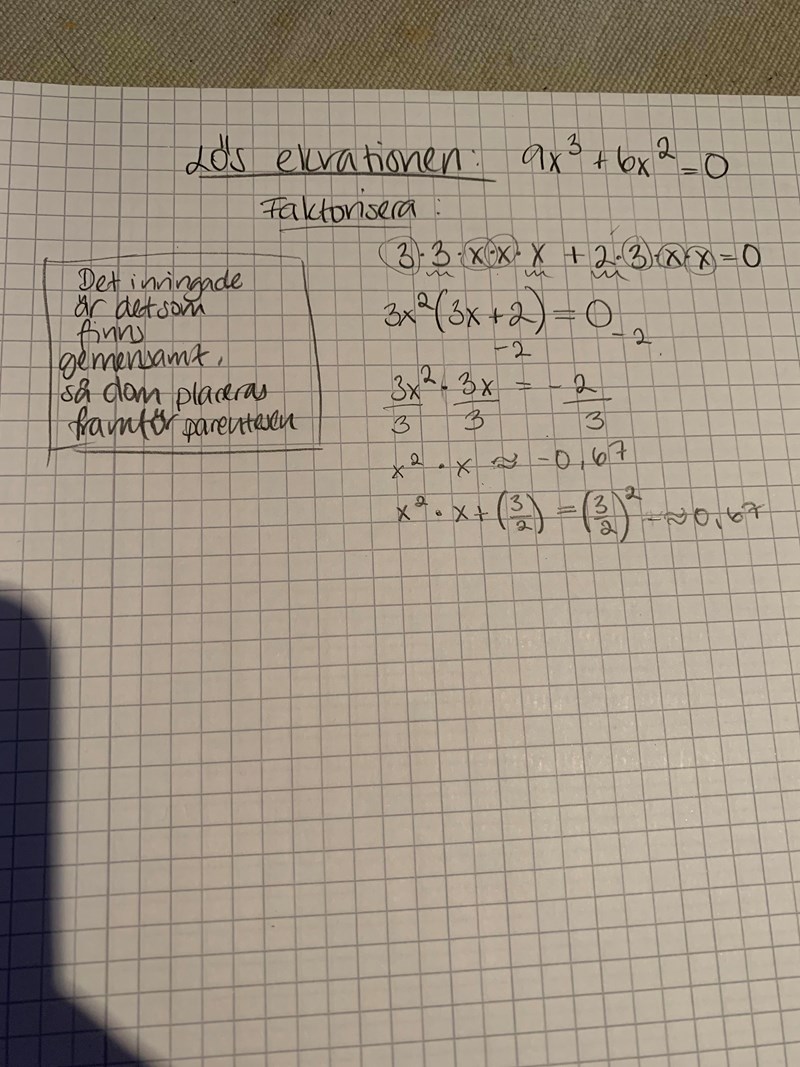 Lös ekvationen: 9x³ + 6x² = 0
Faktorisera:
3·3·x·x·x + 2·3·x·x = 0
Det inringade
är det som
finns
gemensamt,
så dom placeras
framför parentesen
3x²(3x+2) = 0
-2 -2
3x²/3 · 3x/3 = -2/3
x² · x ≈ -0,67
x² · x + (3/2) = (3/2)² - ≈0,67